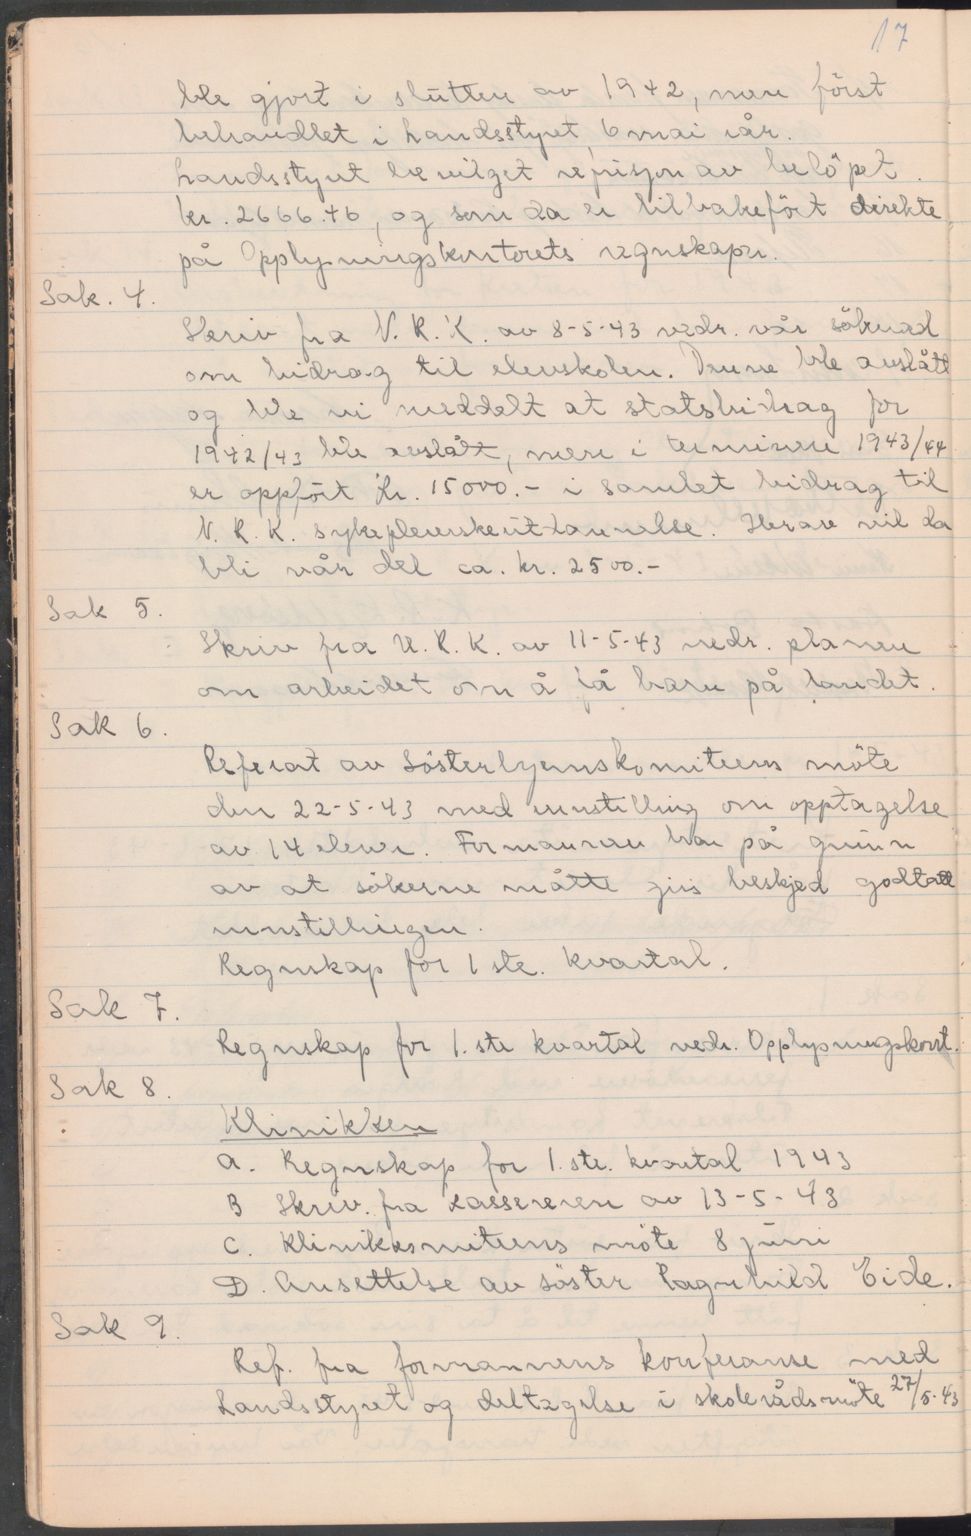 17
ble gjort i slutten av 1942, men först
behandlet i Landsstyret 6 mai iår.
Landsstyret bevilget refusjon av belöpet.
kr. 2666.46, og som da er tilbakefört direkte
på Opplysningskontorets regnskaper.
Sak. 4.
Skriv fra N.R.K. av 8-5-43 vedr. vår söknad
om bidrag til elevskolen. Denne ble avslått
og ble vi meddelt at statsbidrag for
1942/43 ble avslått, men i terminen 1943/44
er oppfört kr. 15000.- i samlet bidrag til
N.R.K. sykepleierskeutdannelse. Herav vil da
bli vår del ca. kr. 2500.-
Sak 5.
Skriv fra N.R.K. av 11-5-43 vedr. planen
om arbeidet om å få barn på landet.
Sak 6.
Referat av Sösterhjemskomiteens möte
den 22-5-43 med innstilling om opptagelse
av 14 elever. Formannen har på grunn
av at sökerne måtte gis beskjed godtatt
innstillingen.
Regnskap for 1 ste. kvartal.
Sak 7.
Regnskap for 1. ste kvartal vedr. Opplysningskont.
Sak 8.
Klinikken
A. Regnskap for 1. ste. kvartal 1943
B Skriv. fra kassereren av 13-5-43
C. Klinikkomiteens möte 8 juni
D. Ansettelse av söster Ragnhild Eide.
Sak 9.
Ref. fra formannens konferanse med
Landsstyret og deltagelse i skolerådsmöte 27/5-43